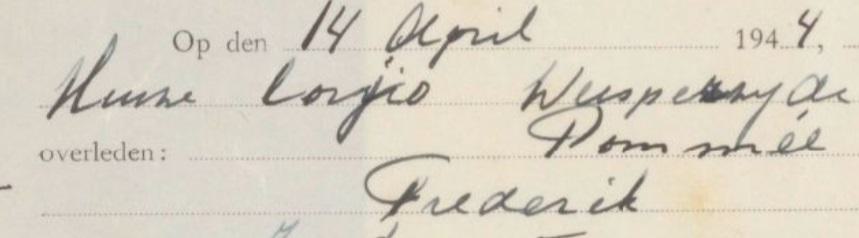 Op den 14 April 1944,
Huize Corgio Weesperzyde
overleden: Pommée
Frederik